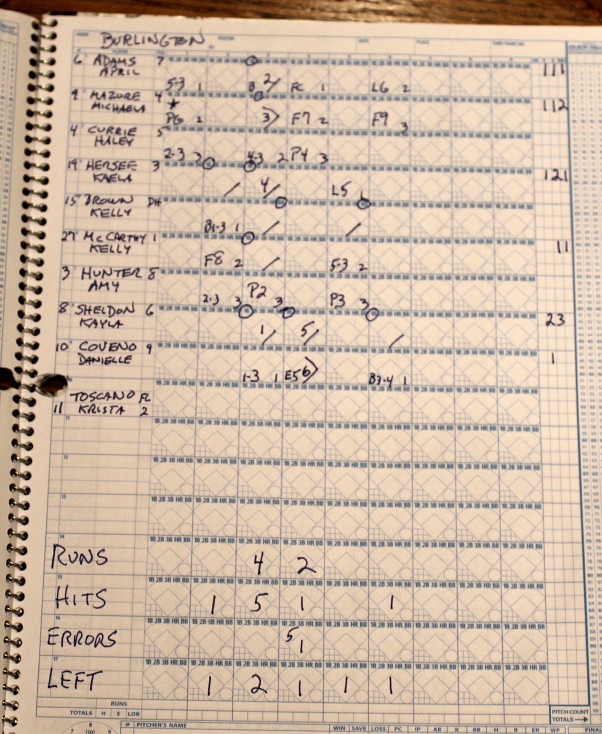 BURLINGTON
6 ADAMS 7 111
APRIL
5-3 1 3 2/ FC 1 L6 2
9 MAZURE 4 112
MICHAELA
P6 2 3 F7 2 F9 3
4 CURRIE 5
HALEY
2-3 3 4-3 2 P4 3
19 HERSEE 3 121
KAELA
4/ L5
15 BROWN DH
KELLY
B1-3 1
27 McCARTHY 1 11
KELLY
F8 2 5-3 2
3 HUNTER 8
AMY
2-3 3 P2 3 P3 3
8 SHELDON 6 23
KAYLA
1/ 5/
10 COVENO 9 1
DANIELLE
1-3 1 E5 6 B3-4 1
TOSCANO FL
11 KRISTA 2
RUNS 4 2
HITS 1 5 1 1
ERRORS 5 1
LEFT 1 2 1 1 1
RUNS
TOTALS H E LOB
PITCH COUNT
TOTALS
# PITCHER'S NAME WIN SAVE LOSS PC IP AB K BB H R ER WP